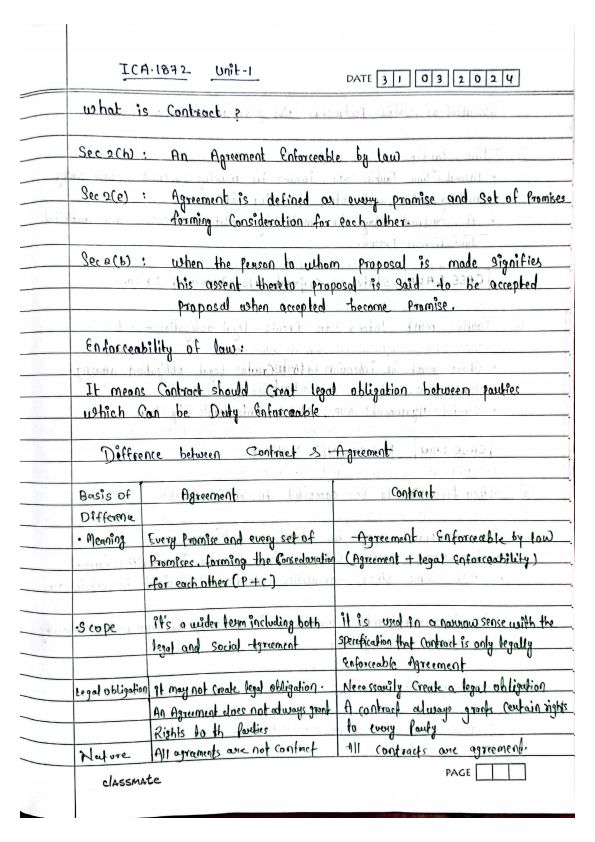 ICA-1872 Unit-1
DATE 3 1 0 3 2 0 2 4
What is Contract ?
Sec 2(h) : An Agreement Enforceable by law
Sec 2(e) : Agreement is defined as every promise and Set of Promises
forming Consideration for each other.
Sec 2(b) : When the Person to whom proposal is made Signifies
his assent thereto proposal is Said to be accepted
Proposal when accepted become Promise.
Enforceability of law:
It means Contract should Creat legal obligation between parties
which Can be Duty Enforceable
Diffrence between Contract & Agreement
Basis of Difference
Agreement
Contract
• Meaning
Every Promise and every set of
Promises, forming the Consedaration
for each other [P+C]
Agreement Enforceable by law
(Agreement + legal Enforceability)
• Scope
it's a wider term including both
legal and Social Agreement
it is used in a narrow sense with the
Specification that Contract is only legally
Enforceable Agreement
Legal obligation
It may not Create legal obligation.
An Agreement does not always grant
Rights to th Parties
Necessarily Create a legal obligation
A contract always grants Certain rights
to every Party
Nature
All agreements are not contract
All contracts are agreement.
classmate
PAGE